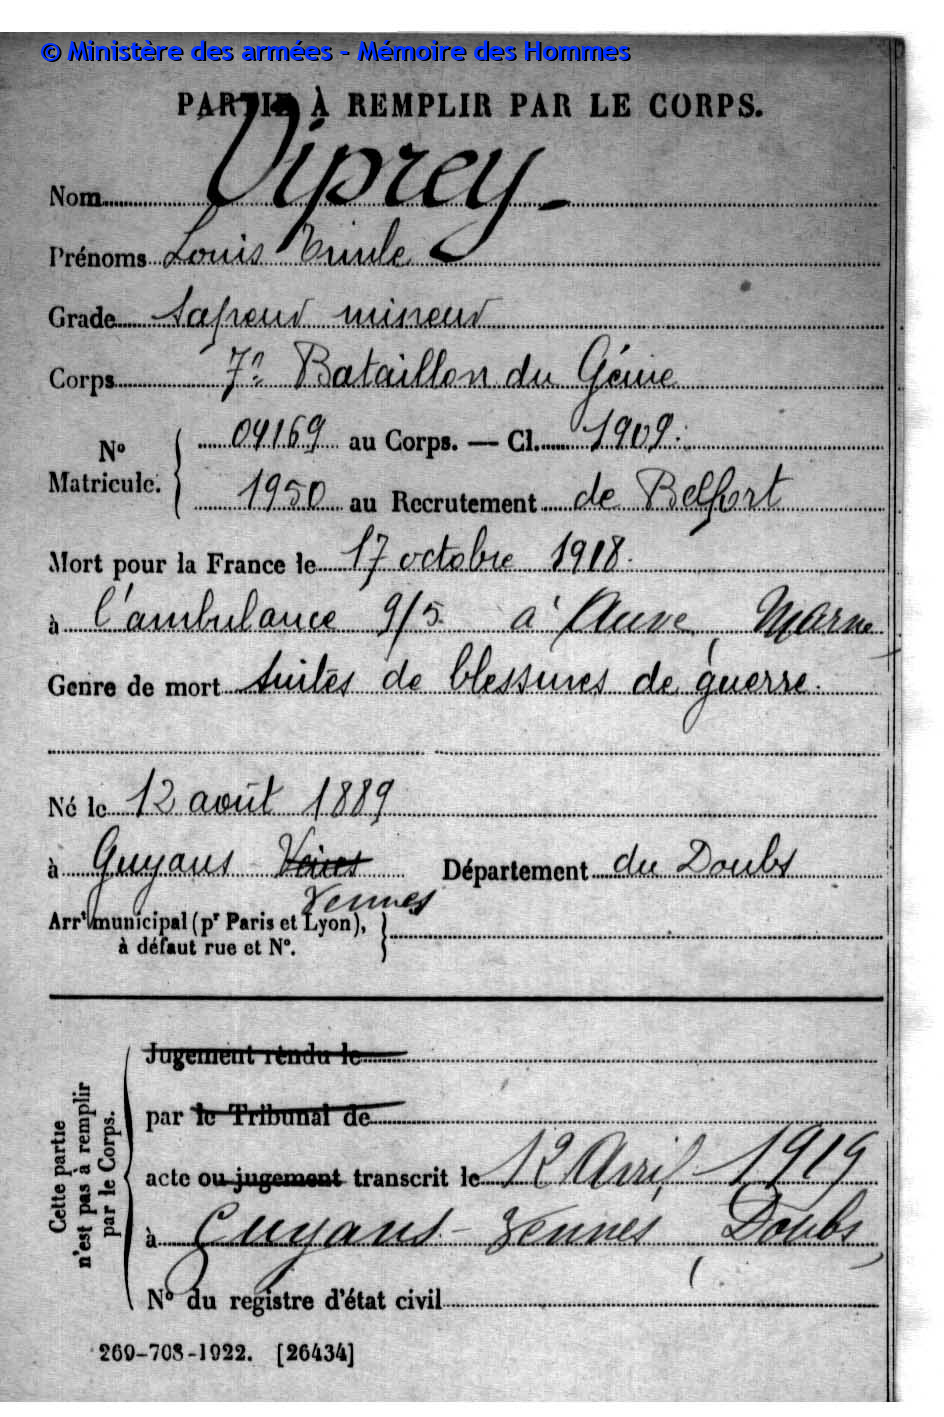 © Ministère des armées - Mémoire des Hommes
PARTIE À REMPLIR PAR LE CORPS.
Nom Viprey
Prénoms Louis Emile
Grade Sapeur mineur
Corps 7e Bataillon du Génie
No Matricule. 04169 au Corps. — Cl. 1909.
1950 au Recrutement de Belfort
Mort pour la France le 17 octobre 1918.
à l'ambulance 9/5 à Auve, Marne
Genre de mort Suites de blessures de guerre.
Né le 12 août 1889
à Guyans Département du Doubs
Vennes
Arrt municipal (pr Paris et Lyon),
à défaut rue et No.
Cette partie
n'est pas à remplir
par le Corps.
Jugement rendu le
par le Tribunal de
acte ou jugement transcrit le 12 Avril 1919
à Guyans-Vennes, Doubs
No du registre d'état civil
269-708-1922. [26434]